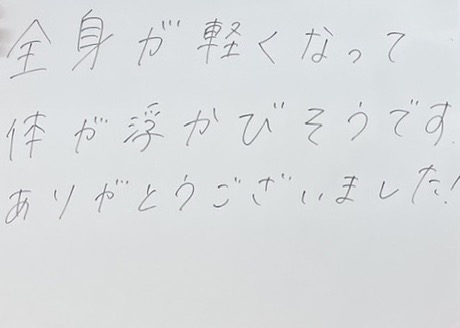 全身が軽くなって
体が浮かびそうです.
ありがとうございました!